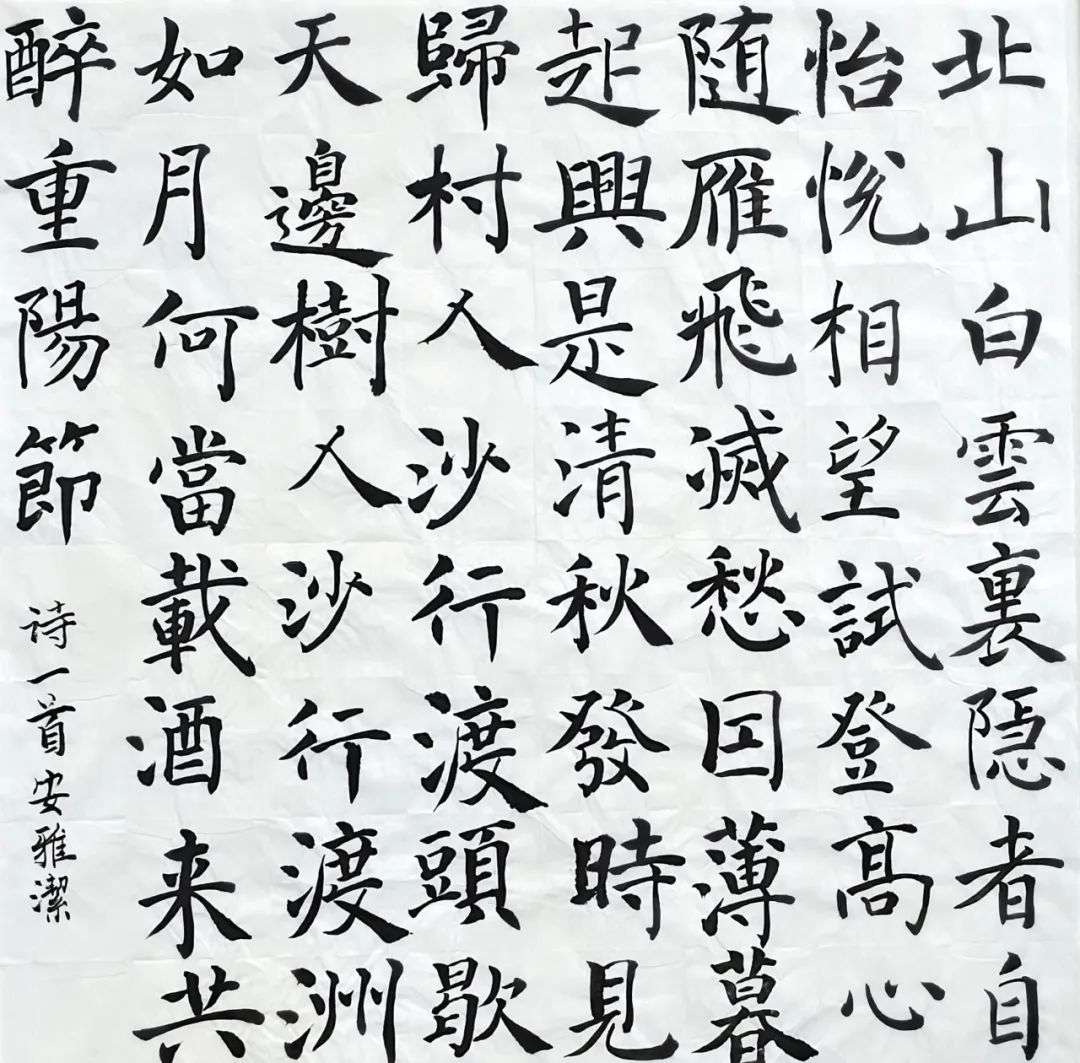 北山白雲裏隐者自
怡悦相望試登高心
随雁飛滅愁因薄暮
起興是清秋發時見
歸村人沙行渡頭歇
天邊樹人沙行渡洲
如月何當載酒来共
醉重陽節
诗一首安雅潔